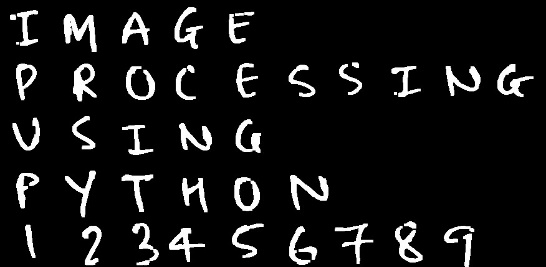 IMAGE
PROCESSING
USING
PYTHON
123456789